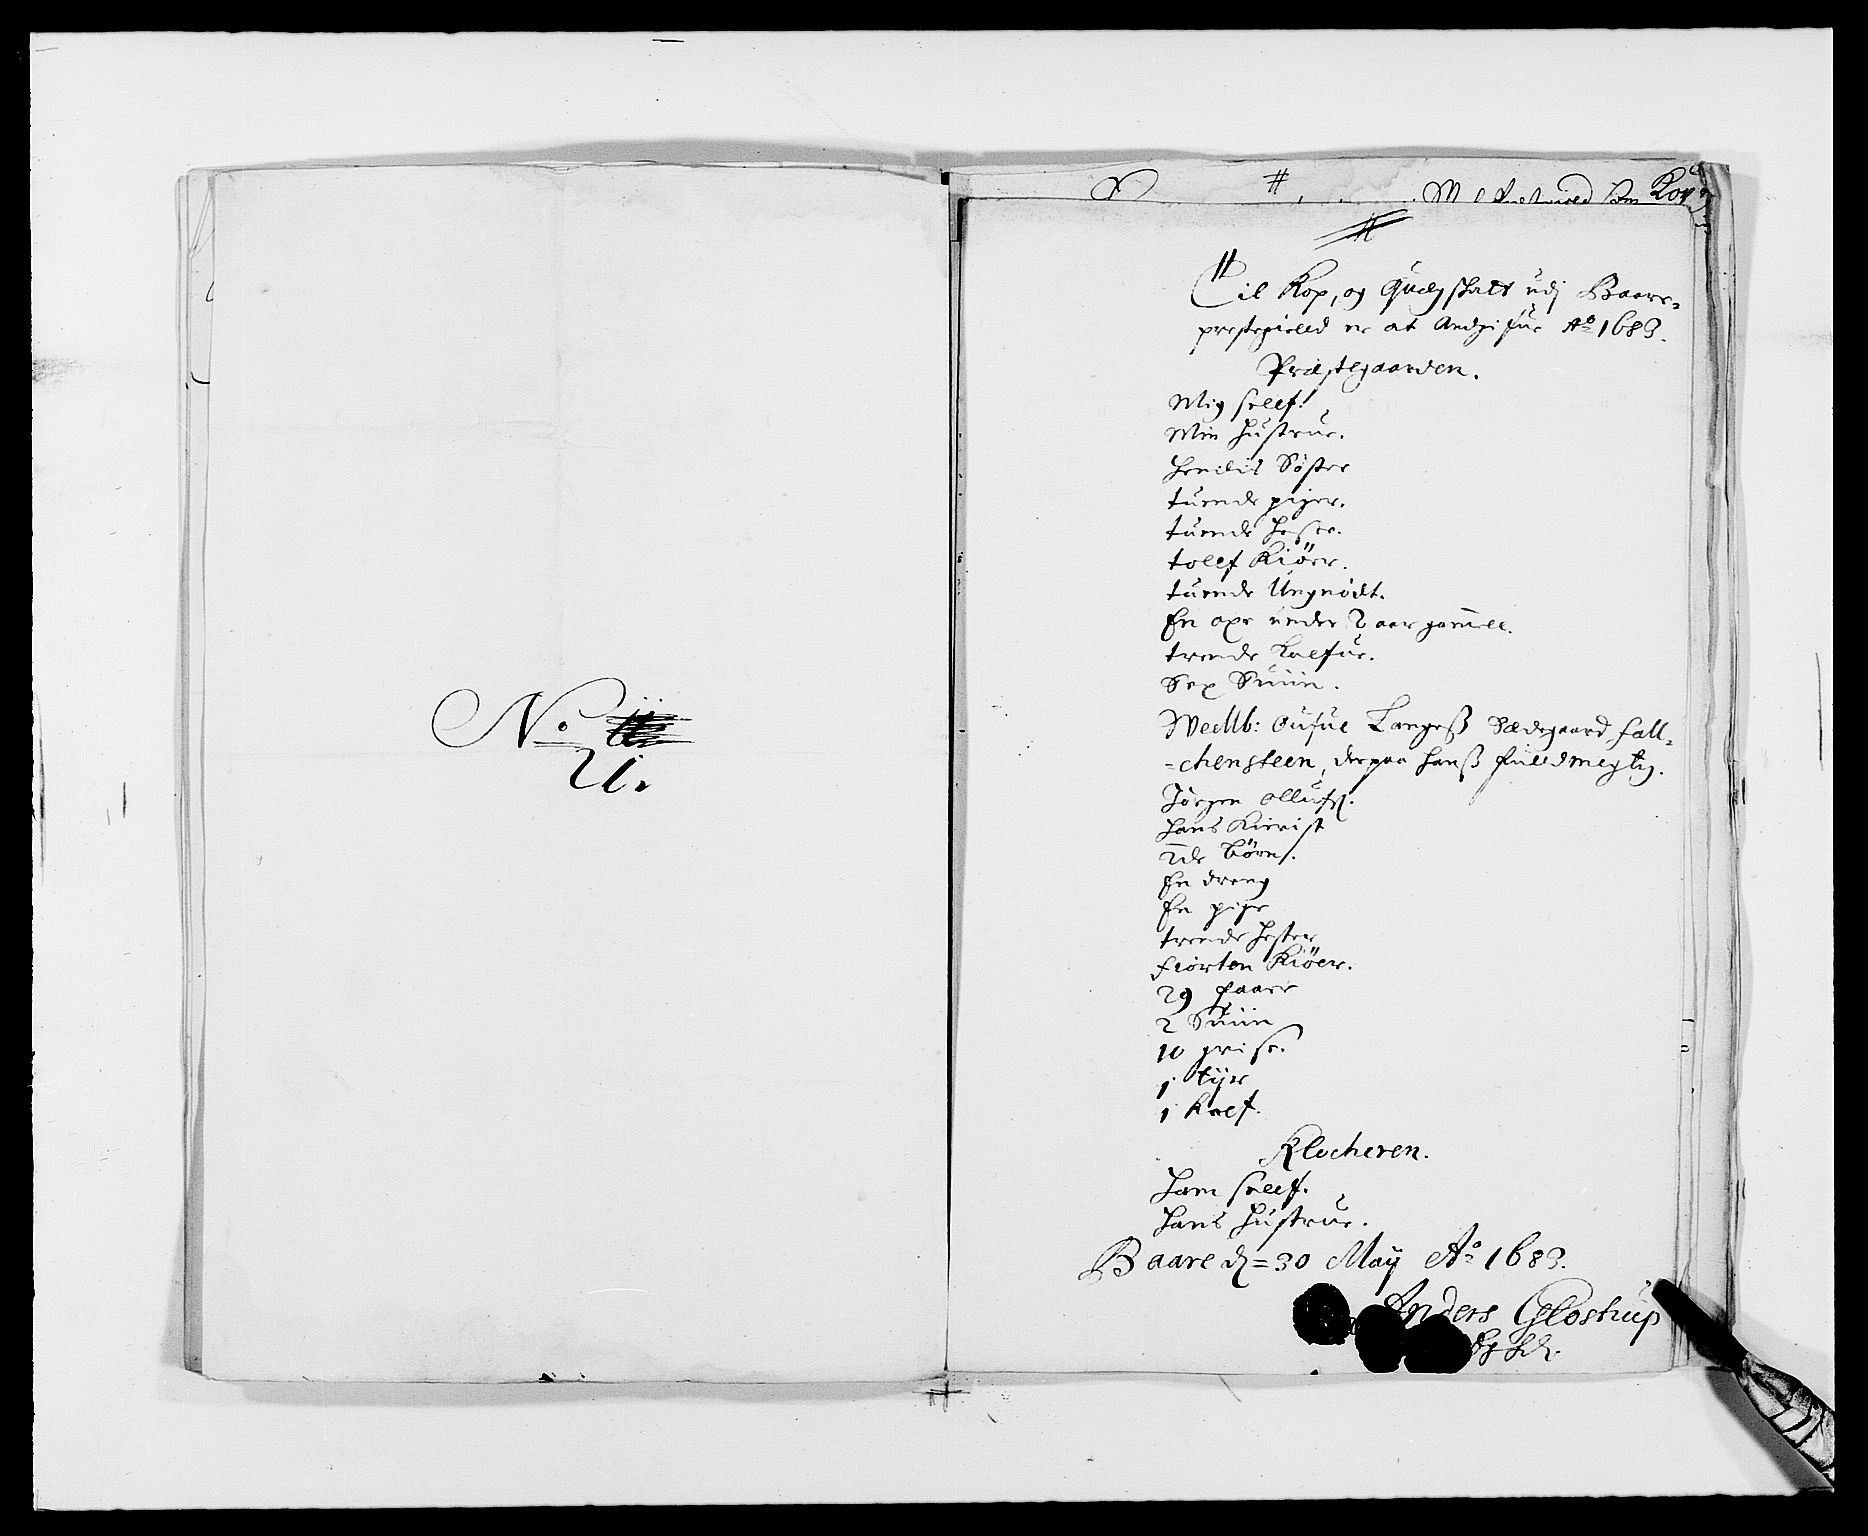 No
21.
Til Kop, og Quæg skatt udj Baare-
prestegield er at Andgifue Ao 1683.
Præstegaarden.
Mig sellf!
Min Hustrue.
Hendis Søster
tuende piger.
tuende Heste.
tollf Kiör.
tuende Ungnödt.
En oxe under 2 aar gamell.
trende Kalfue.
Sex Suiin.
Wellb: Oufue Langeß Sædegaard Fall-
-chensteen, derpaa Hanß fulldmegtig.
Jörgen Ollufß.
Hans Quist
2de Börn.
En dreng
En pige
trende Hester
fiorten Kiöer.
29 faaer
2 Suiin
10 grise.
1 tyer
1 Kalf.
Klocheren.
Ham sellf.
Hans Hustrue.
Baare d = 30 Maij Ao 1683.
Anders Glostrup